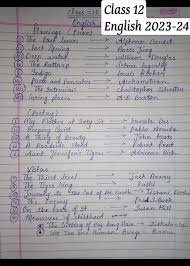 Class 12
English 2023-24
Class - 12
English
Flamingo (Prose)
The Last Lesson → Alphonse Daudet
Lost Spring → Anees Jung
Deep water → William Douglas
The Rattrap → Selma
Indigo → Louis Fischer
Poets and Pancakes → Asokamitran
The Interview → Christopher Silvester
Going places → A.R. Barton
(Poetry)
My Mother at Sixty Six → Kamala Das
Keeping Quiet → Pablo Neruda
A Thing of Beauty → John Keats
A Roadside Stand → Robert Frost
Aunt Jennifer's Tigers → Adrienne Rich
Vistas
The Third Level → Jack Finney
The Tiger King → Kalki
Journey to the end of the Earth → Tishani Doshi
The Enemy → Pearl S. Buck
On the face of it → Susan Hill
Memories of Childhood
The Cutting of My Long Hair → Zitkala-Sa
We Too are Human Beings → Bama